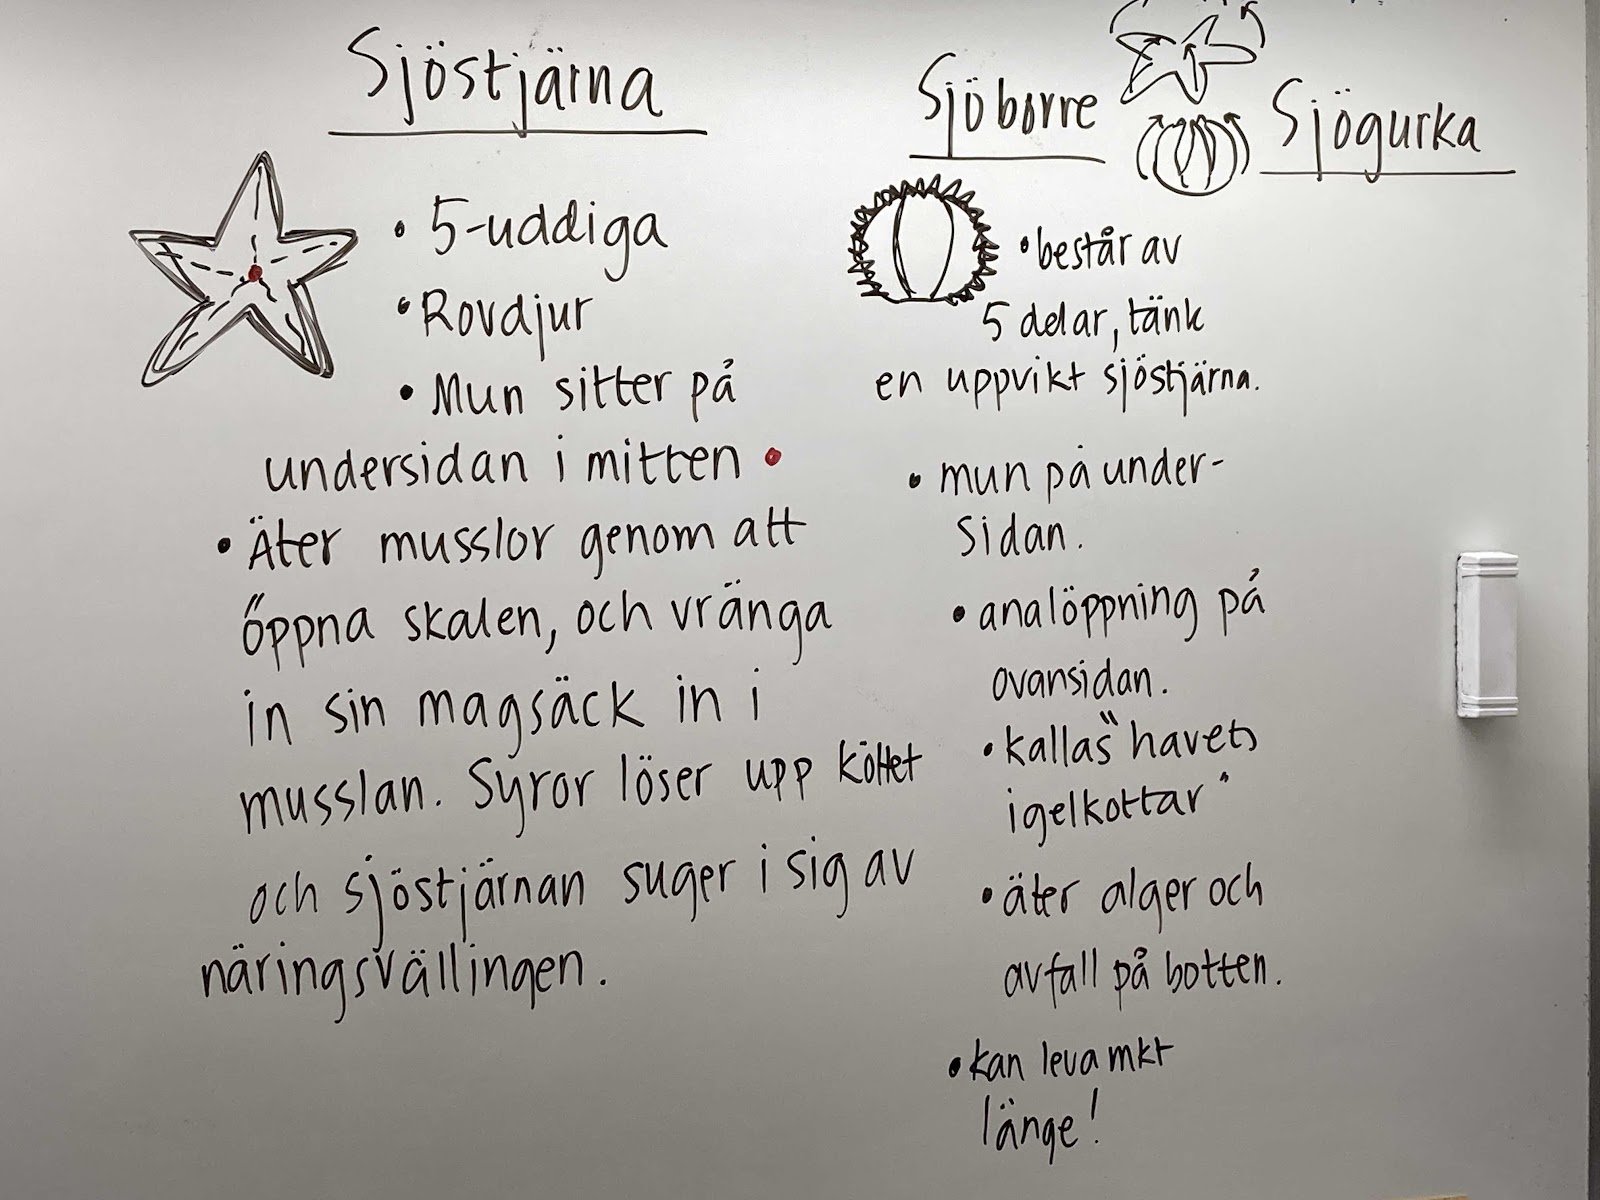 Sjöstjärna
• 5-uddiga
• Rovdjur
• Mun sitter på
undersidan i mitten •
• Äter musslor genom att
öppna skalen, och vränga
in sin magsäck in i
musslan. Syror löser upp köttet
och sjöstjärnan suger i sig av
näringsvällingen.
Sjöborre
• består av
5 delar, tänk
en uppvikt sjöstjärna.
• mun på under-
sidan.
• analöppning på
ovansidan.
• kallas "havets
igelkottar"
• äter alger och
avfall på botten.
• kan leva mkt
länge!
Sjögurka